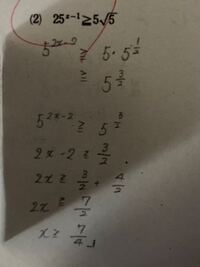 (2) 25^{x-1} ≧ 5√5
5^{2x-2} ≧ 5・5^{\frac{1}{2}}
≧ 5^{\frac{3}{2}}
5^{2x-2} ≧ 5^{\frac{3}{2}}
2x-2 ≧ \frac{3}{2}.
2x ≧ \frac{3}{2} + \frac{4}{2}
2x ≧ \frac{7}{2}
x ≧ \frac{7}{4}